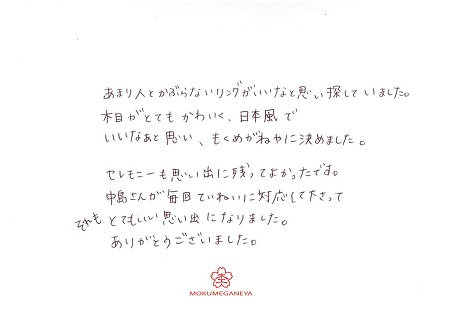 あまり人とかぶらないリングがいいなと思い探していました。
木目がとてもかわいく、日本風で
いいなぁと思い、もくめがねやに決めました。
セレモニーも思い出に残ってよかったです。
中島さんが毎回ていねいに対応して下さって
それも とてもいい思い出になりました。
ありがとうございました。
MOKUMEGANEYA